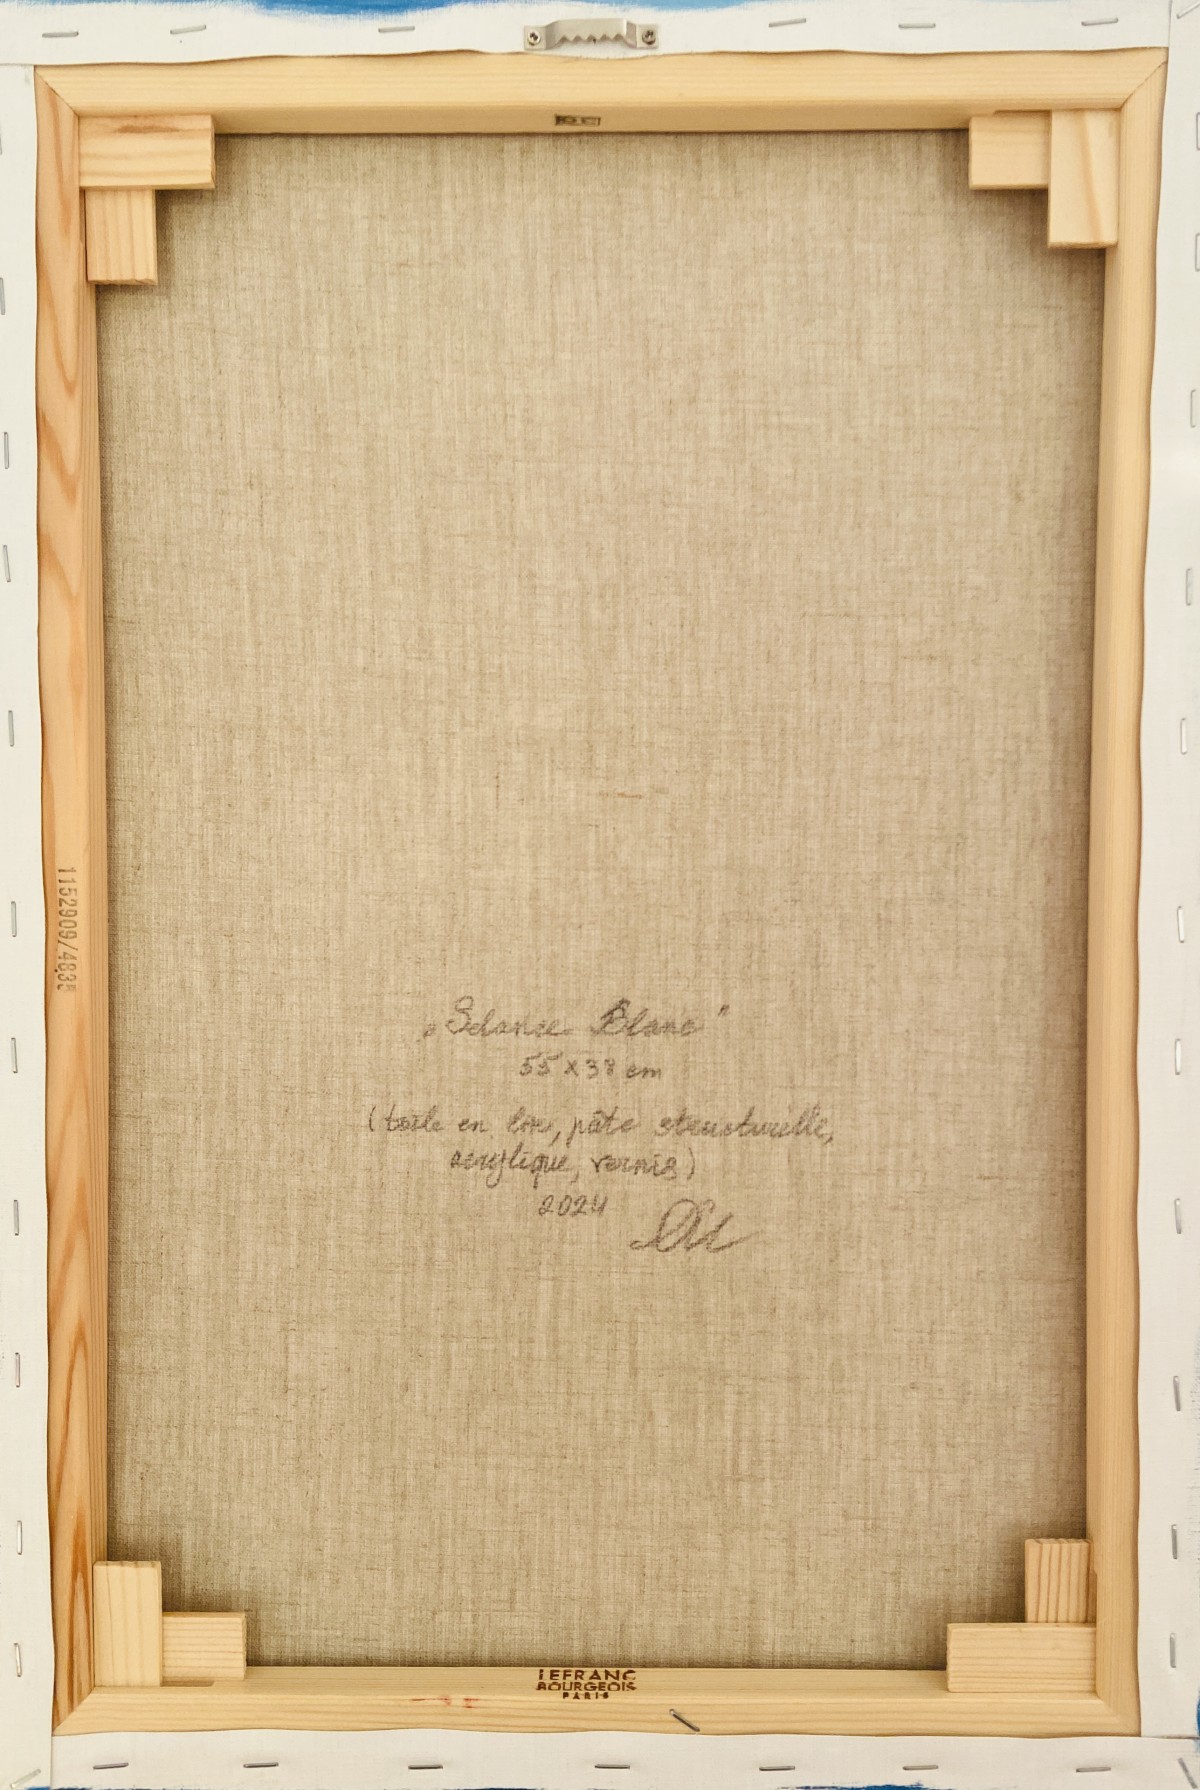 „Selance Blanc"
55 x 38 cm
(toile en lin, pâte structurelle,
acrylique, vernis)
2024
1152909/483
LEFRANC
BOURGEOIS
PARIS